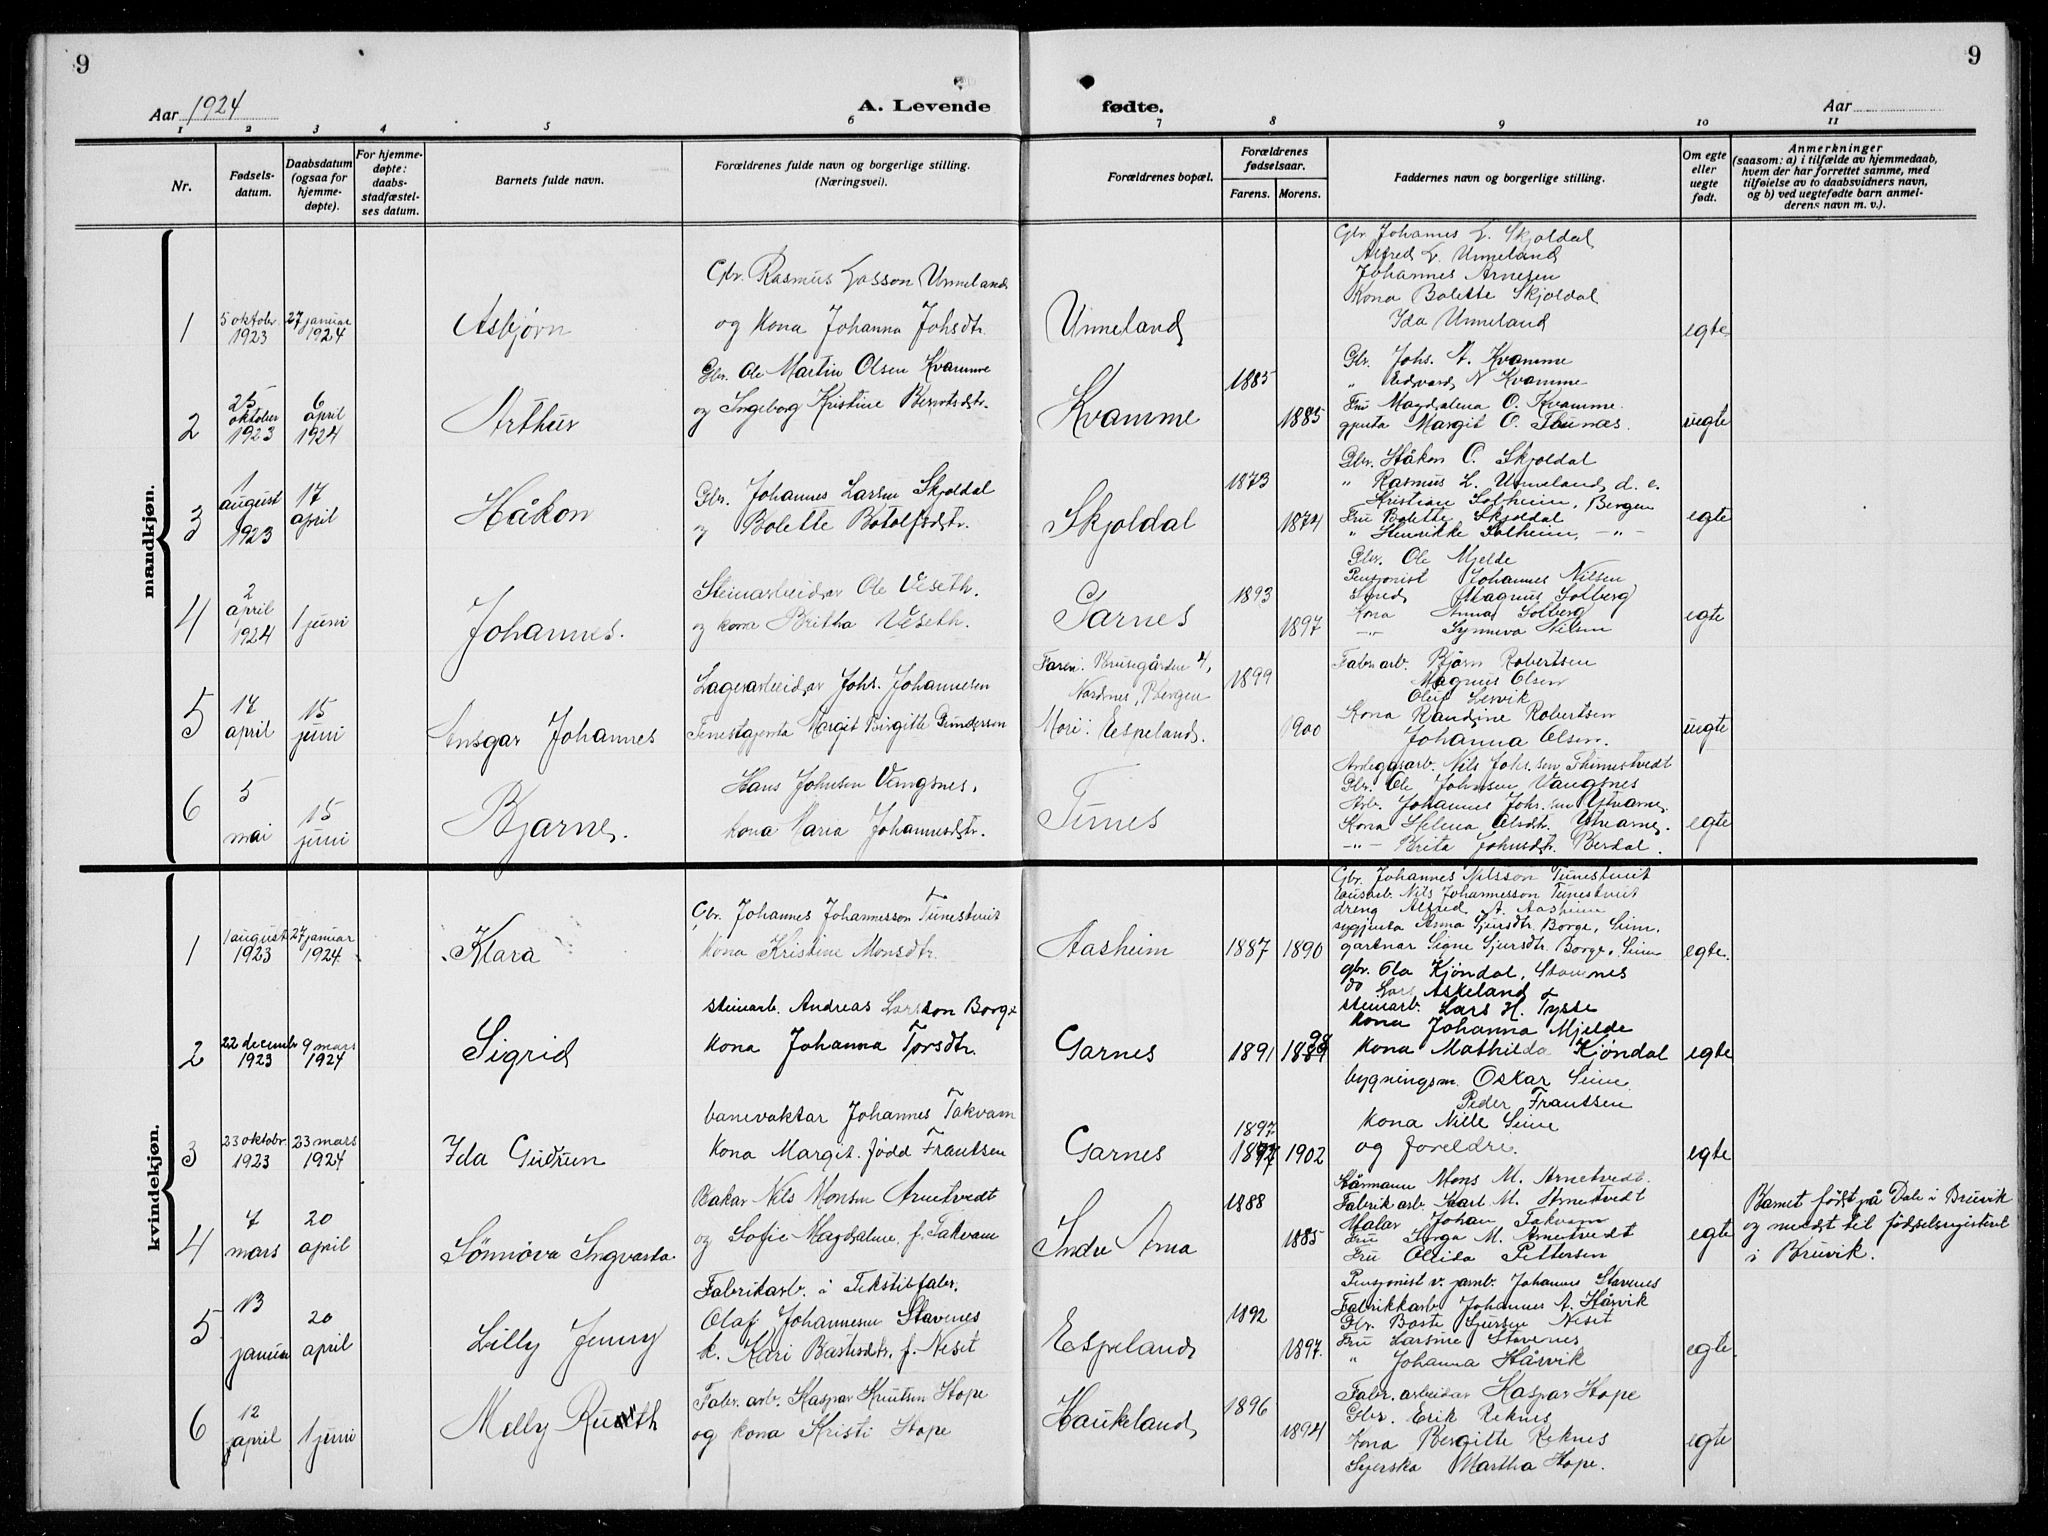 9
9
Aar 1924
A. Levende
fødte.
Aar
1 2 3 4 5 6 7 8 9 10 11
Nr.
Fødsels-
datum.
Daabsdatum
(ogsaa for
hjemme-
døpte).
For hjemme-
døpte:
daabs-
stadfæstel-
ses datum.
Barnets fulde navn.
Forældrenes fulde navn og borgerlige stilling.
(Næringsvei).
Forældrenes bopæl.
Forældrenes
fødselsaar.
Farens. Morens.
Faddernes navn og borgerlige stilling.
Om egte
eller
uegte
født.
Anmerkninger
(saasom: a) i tilfælde av hjemmedaab,
hvem der har forrettet samme, med
tilføielse av to daabsvidners navn,
og b) ved uegtefødte barn anmel-
derens navn m. v.).
mandkjøn.
1
5 oktobr.
1923
27 januar
1924
Asbjørn
Gbr. Rasmus Lasson Unneland
og kona Johanna Johsdtr.
Unneland
Gbr. Johannes L. Skjoldal
Alfred L. Unneland
Johannes Arnesen
Kona Bolette Skjoldal
Ida Unneland
egte
2
25
oktober
1923
6
april
1924
Arthur
Gbr. Ole Martin Olsen Kvamme
og Ingeborg Kristine Berntsdtr.
Kvamme
1885
1885
Gbr. Johs. A. Kvamme
" Edvard N Kvamme
Fru Magdalena O. Kvamme
gjenta Margit O. Tunes.
uegte
3
1
august
1923
17
april
Håkon
Gbr. Johannes Larsen Skjoldal
og Bolette Botolfsdtr.
Skjoldal
1873
1874
Gbr. Håkon O. Skjoldal
" Rasmus L. Unneland d. e.
Kristian Solheim, Bergen
Fru Bolette Skjoldal
" Henrikke Solheim, -"-
egte
4
2
april
1924
1 juni
Johannes.
Steinarbeidar Ole Veseth.
og kona Britha Veseth.
Garnes
1893
1897
Gbr. Ole Mjelde
Pensjonist Johannes Nilsen
Smed Magnus Solberg
Kona Anna Solberg
-"- Synneva Nilsen
egte
5
17
april
15
juni
Ansgar Johannes
Lagerarbeidar Johs. Johannesen
Tenestgjenta Margit Birgitte Gundersen
Faren: Krusegården 4,
Nordnes, Bergen
Mori: Espeland.
1899
1900
Fabr. arb. Bjørn Robertsen
Magnus Olsen
Oluf Lervik
Kona Randine Robertsen
Johanna Olsen.
uegte
6
5
mai
15
juni
Bjarne.
Hans Johnsen Vangsnes.
kona Maria Johannesdtr.
Tunes
Anleggsarb. Nils Johs.sen Thunestvedt
Gbr. Ole Johnsen Vangsnes
Arb. Johannes Johs.sen Ytrearne
Kona Helena Olsdtr. Ytrearne.
-"- Brita Johnsdtr. Berdal.
egte
kvindekjøn.
1
1 august
1923
27 januar
1924
Klara
Gbr. Johannes Johannesson Tunestveit
kona Kristine Monsdtr.
Aasheim
1887
1890
Gbr. Johannes Nilsson Tunestveit
lausarb. Nils Johannesson Tunestveit
dreng Alfred A. Aasheim
sygjenta Anna Sjursdtr. Borge, Seim.
gartnar Signe Sjursdtr. Borge, Seim
egte.
2
22 december
1923
9 mars
1924
Sigrid
steinarb. Andreas Larsson Borge
kona Johanna Torsdtr.
Garnes
1891
1889 98
gbr. Ola Kjøndal, Stavnes
do Lars Askeland
steinarb. Lars H. Tysse
kona Johanna Mjelde
kona Mathilda Kjøndal
egte
3
23 oktobr.
1923
23 mars
1924
Ida Gudrun
banevaktar Johannes Takvam
kona Margit. fødd Frantsen
Garnes
1897
1897
1902
bygningsm. Oskar Seim
Peder Frantsen
kona Nille Seim
og foreldre.
egte
4
7
mars
20
april
Sønnøva Ingvarda
Bakar Nils Monsen Arnetvedt
og Sofie Magdalene f. Takvam
Indre Arna
1888
1885
Kårmann Mons M. Arnetvedt.
Fabrik arb. Karl M. Arnetvedt
Malar Johan Takvam
Fru Inga M. Arnetvedt
Fru Olida Pettersen
egte
Barnet født på Dale i Bruvik
og meldt til fødselsregisteret
i Bruvik.
5
13
januar
20
april
Lilly Jenny
Fabrikarb. i Tekstilfabr.
Olaf Johannesen Stavenes
k. Kari Bårdsdtr. f. Neset
Espeland
1892
1897.
Pensjonist v. jarnb. Johannes Stavenes
Fabrikkarb. Johannes A. Hårvik
Gbr. Boste Sjursen Neset
Fru Larsine Stavenes
" Johanna Hårvik
egte
6
12
april
1 juni
Melly Ruth
Fabr. arb. Kaspar Knutsen Hope
og kona Kristi Hope
Haukeland
1896
1894
Fabr. arbeidar Kaspar Hope
Gbr. Erik Reknes
Kona Bergitte Reknes
Syerska Martha Hope.
egte